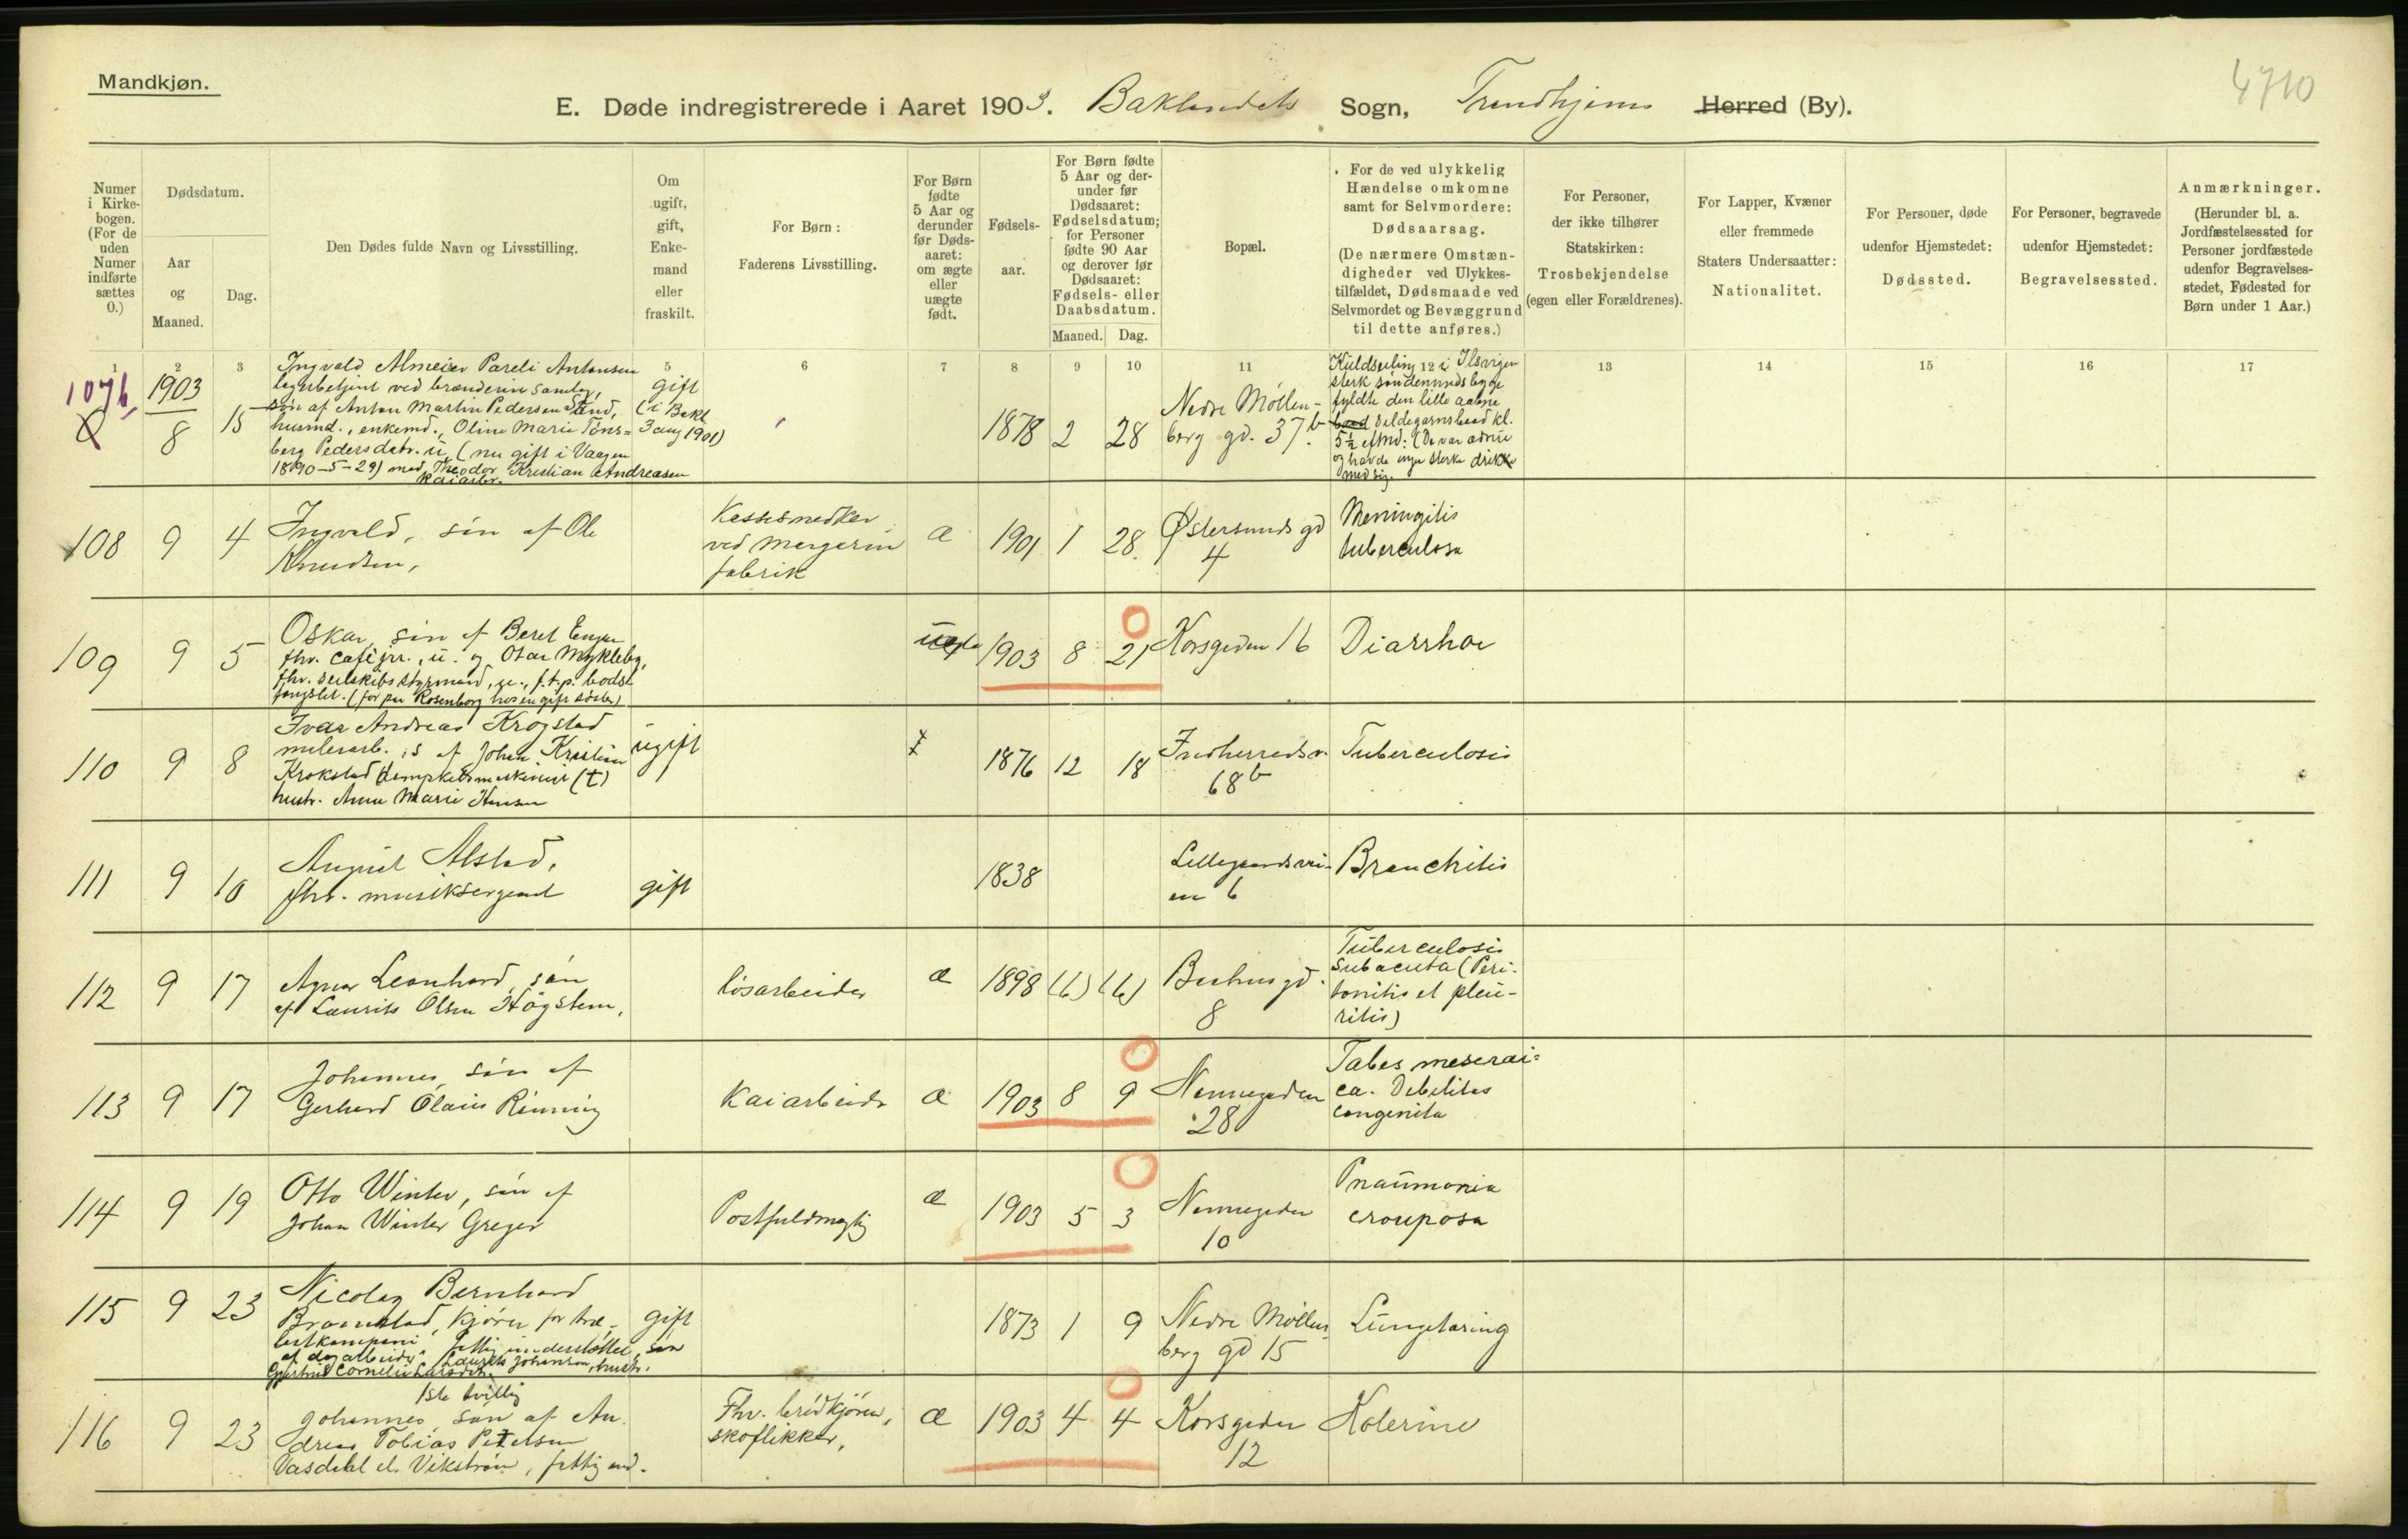 Mandkjøn.
4710
E. Døde indregistrerede i Aaret 1903. Baklandets Sogn, Trondhjems Herred (By).
Numer i Kirkebogen. (For de uden Numer indførte sættes 0.)
Dødsdatum.
Aar og Maaned.
Dag.
Den Dødes fulde Navn og Livsstilling.
Om ugift, gift, Enkemand eller fraskilt.
For Børn:
Faderens Livsstilling.
For Børn fødte 5 Aar og derunder før Dødsaaret: om ægte eller uægte født.
Fødselsaar.
For Børn fødte 5 Aar og derunder før Dødsaaret: Fødselsdatum; for Personer fødte 90 Aar og derover før Dødsaaret: Fødsels- eller Daabsdatum.
Maaned. Dag.
Bopæl.
For de ved ulykkelig Hændelse omkomne samt for Selvmordere: Dødsaarsag.
(De nærmere Omstændigheder ved Ulykkestilfældet, Dødsmaade ved Selvmordet og Bevæggrund til dette anføres.)
For Personer, der ikke tilhører Statskirken: Trosbekjendelse (egen eller Forældrenes).
For Lapper, Kvæner eller fremmede Staters Undersaatter: Nationalitet.
For Personer, døde udenfor Hjemstedet: Dødssted.
For Personer, begravede udenfor Hjemstedet: Begravelsessted.
Anmærkninger.
(Herunder bl. a. Jordfæstelsessted for Personer jordfæstede udenfor Begravelsesstedet, Fødested for Børn under 1 Aar.)
1 2 3 5 6 7 8 9 10 11 12 13 14 15 16 17
107b 1903 8 15
Ingvald Almeier Pareli Antonsen
lagerbetjent ved brænderin samlag,
søn af Anton Martin Pedersen Sand,
husmd., enkemd., Oline Marie Tøns=
berg Pedersdatr. u. (nu gift i Vaagen
1890-5-29) med Theodor Kristian Andreasen
kaiarbr.
gift
(i Bakl
3 aug 1901)
1878 2 28
Nedre Møllen-
berg gd. 37b.
Kuldseiling i Ilsvigen
sterk søndenvinds bygge
fyldte den lille aabne
baad sildegarnsbaad kl.
5½ eftmd. (De var ædrue
og havde ingen sterke drikke
med sig.
108 9 4
Ingvald, søn af Ole
Knudsen,
Kassesnedker
ved margarin
fabrik
æ 1901 1 28.
Østersunds gd
4
Meningitis
tuberculosa
109 9 5
Oskar, søn af Beret
fhv. cafejr., u. og Myklebg,
fhv. seilskibs styrmand, f.t.p. bods
fængslet. (for paa Rosenborg hos en gift søster)
uægte 1903 8 21
Korsgaden 16
Diarrhoe
110 9 8
Ivar Andreas Krogstad
malerarb., s. af Johan Kristian
Krokstad dampskibsmaskinist (†)
hustr. Anne Marie Hansen
ugift
1876 12 18
Indherredsv.
68b
Tuberculosis
111 9 10
August Alstad,
fhv. musiksergeant
gift
1838
Lillegaardsvei-
en 6
Bronchitis
112 9 17
Agnar Leonhard, søn
af Laurits Olsen Høgstem,
løsarbeider
æ 1898 (6) (6)
Bushus gd.
8
Tuberculosis
subacuta (Peri-
tonitis et pleu-
ritis)
113 9 17
Johannes, søn af
Gerhard Olaus Rønning
Kaiarbeidr
æ 1903 8 9
Nonnegaden
28
Tabes meserai=
ca. Debilitas
congenita
114 9 19
Otto Winter, søn af
Johan Winter Greger
Postfuldmægtig
æ 1903 5 3
Nonnegaden
10
Pnaumonia
crouposa
115 9 23
Nicolay Bernhard
Kjører for træ-
lastkompani fattig understøttet, søn
af dagarbeider Laurits Johansen, hustr.
Gjertrud Cornelie Larsdtr.
gift
1873 1 9
Nedre Møllen
berg gd 15
Lungetæring
116 9 23
1ste tvillig
Johannes, søn af An-
dreas Tobias Petersen
Vasdahl el. Vikstrøm, fattig und.
Fhv. brødkjører,
skoflikker,
æ 1903 4 4
Korsgaden
12
Kolerine